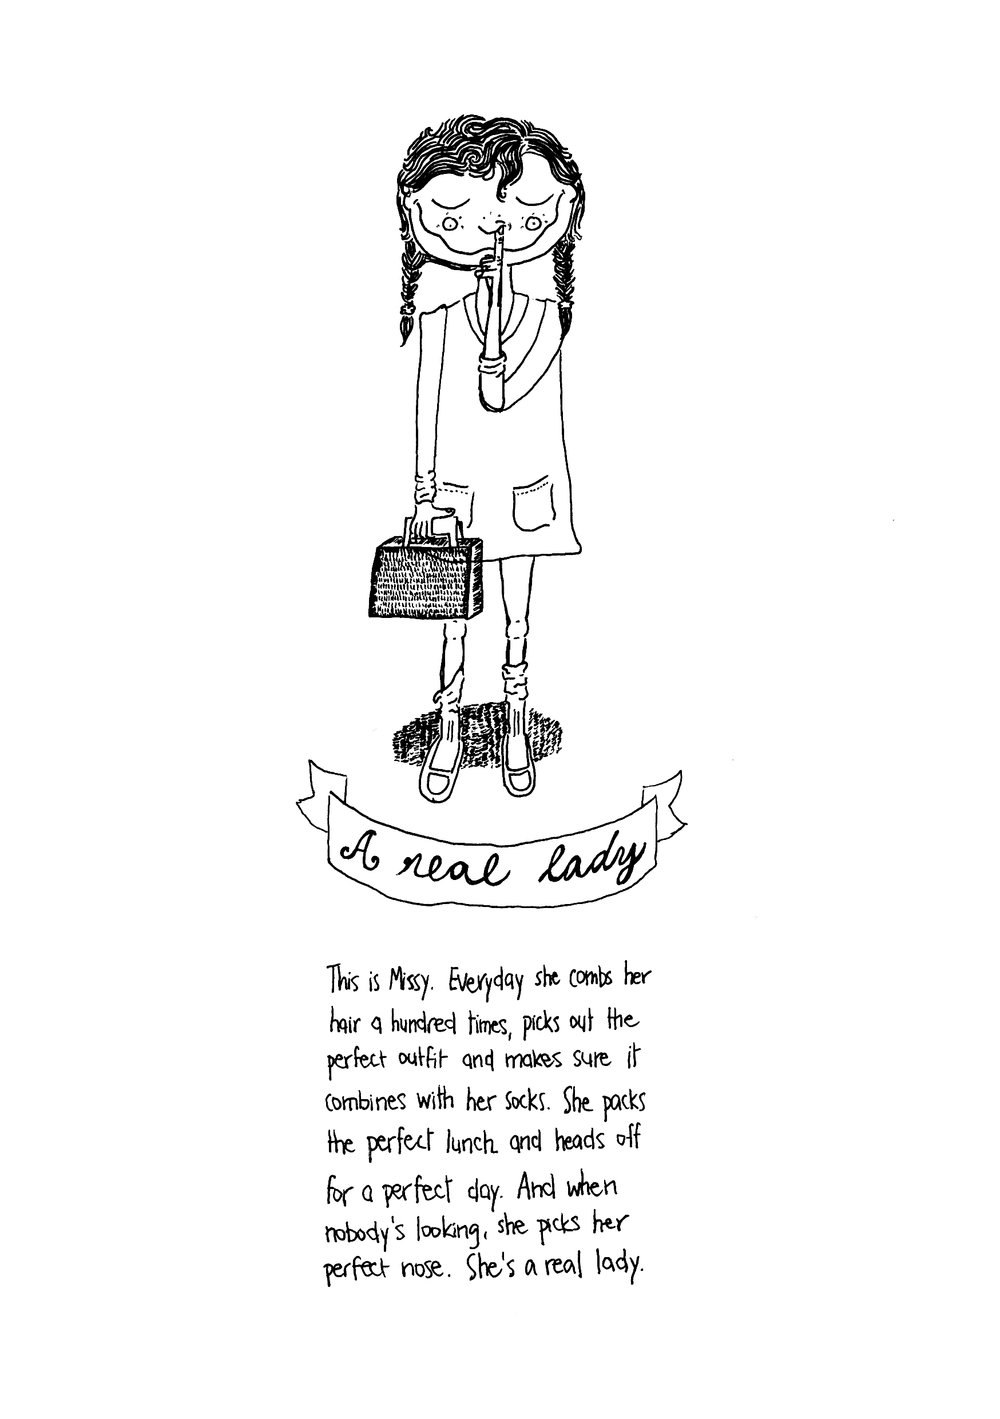 A real lady
This is Missy. Everyday she combs her
hair a hundred times, picks out the
perfect outfit and makes sure it
combines with her socks. She packs
the perfect lunch and heads off
for a perfect day. And when
nobody's looking, she picks her
perfect nose. She's a real lady.